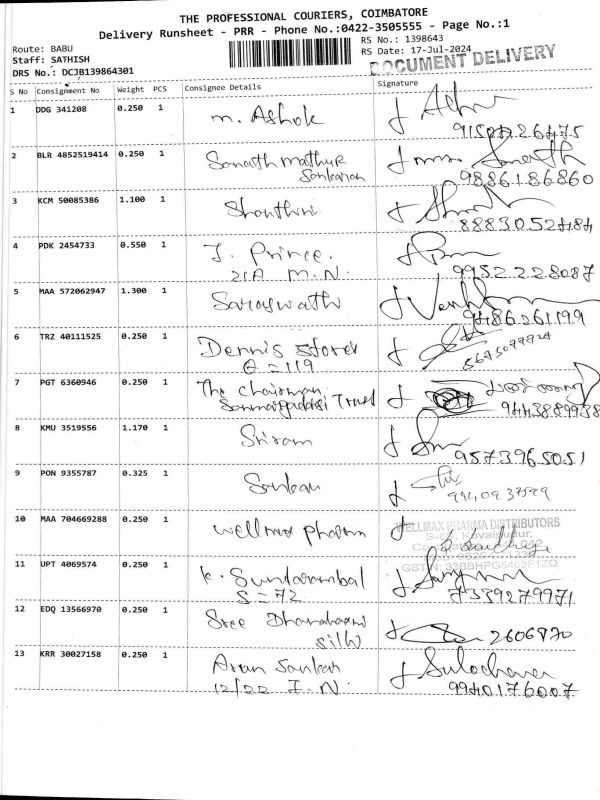 THE PROFESSIONAL COURIERS, COIMBATORE
Delivery Runsheet - PRR - Phone No.:0422-3505555 - Page No.:1
Route: BABU
Staff: SATHISH
DRS No.: DCJB139864301
RS No.: 1398643
RS Date: 17-Jul-2024
DOCUMENT DELIVERY
S No Consignment No Weight PCS Consignee Details Signature
1 DDG 341208 0.250 1 M. Ashok
2 BLR 4852519414 0.250 1 Sanath Mathur
Sankaran
9886186860
3 KCM 50085386 1.100 1 Shanthini
4 PDK 2454733 0.550 1 J. Prince.
21A M.N.
9952228087
5 MAA 572062947 1.300 1 Saraswathi
9486261199
6 TRZ 40111525 0.250 1 Dennis stores
119
7 PGT 6360946 0.250 1 The Chairman
Trust
9443889938
8 KMU 3519556 1.170 1 Sriram
9573965051
9 PON 9355787 0.325 1 Sankar
10 MAA 704669288 0.250 1 wellmax pharma
WELLMAX PHARMA DISTRIBUTORS
11 UPT 4069574 0.250 1 K. Sundarambal
S-72
7339279971
12 EDQ 13566970 0.250 1 Sree
silk
2606870
13 KRR 30027158 0.250 1 Arun Sankar
12/22 J.N.
Sulochana
9940176007